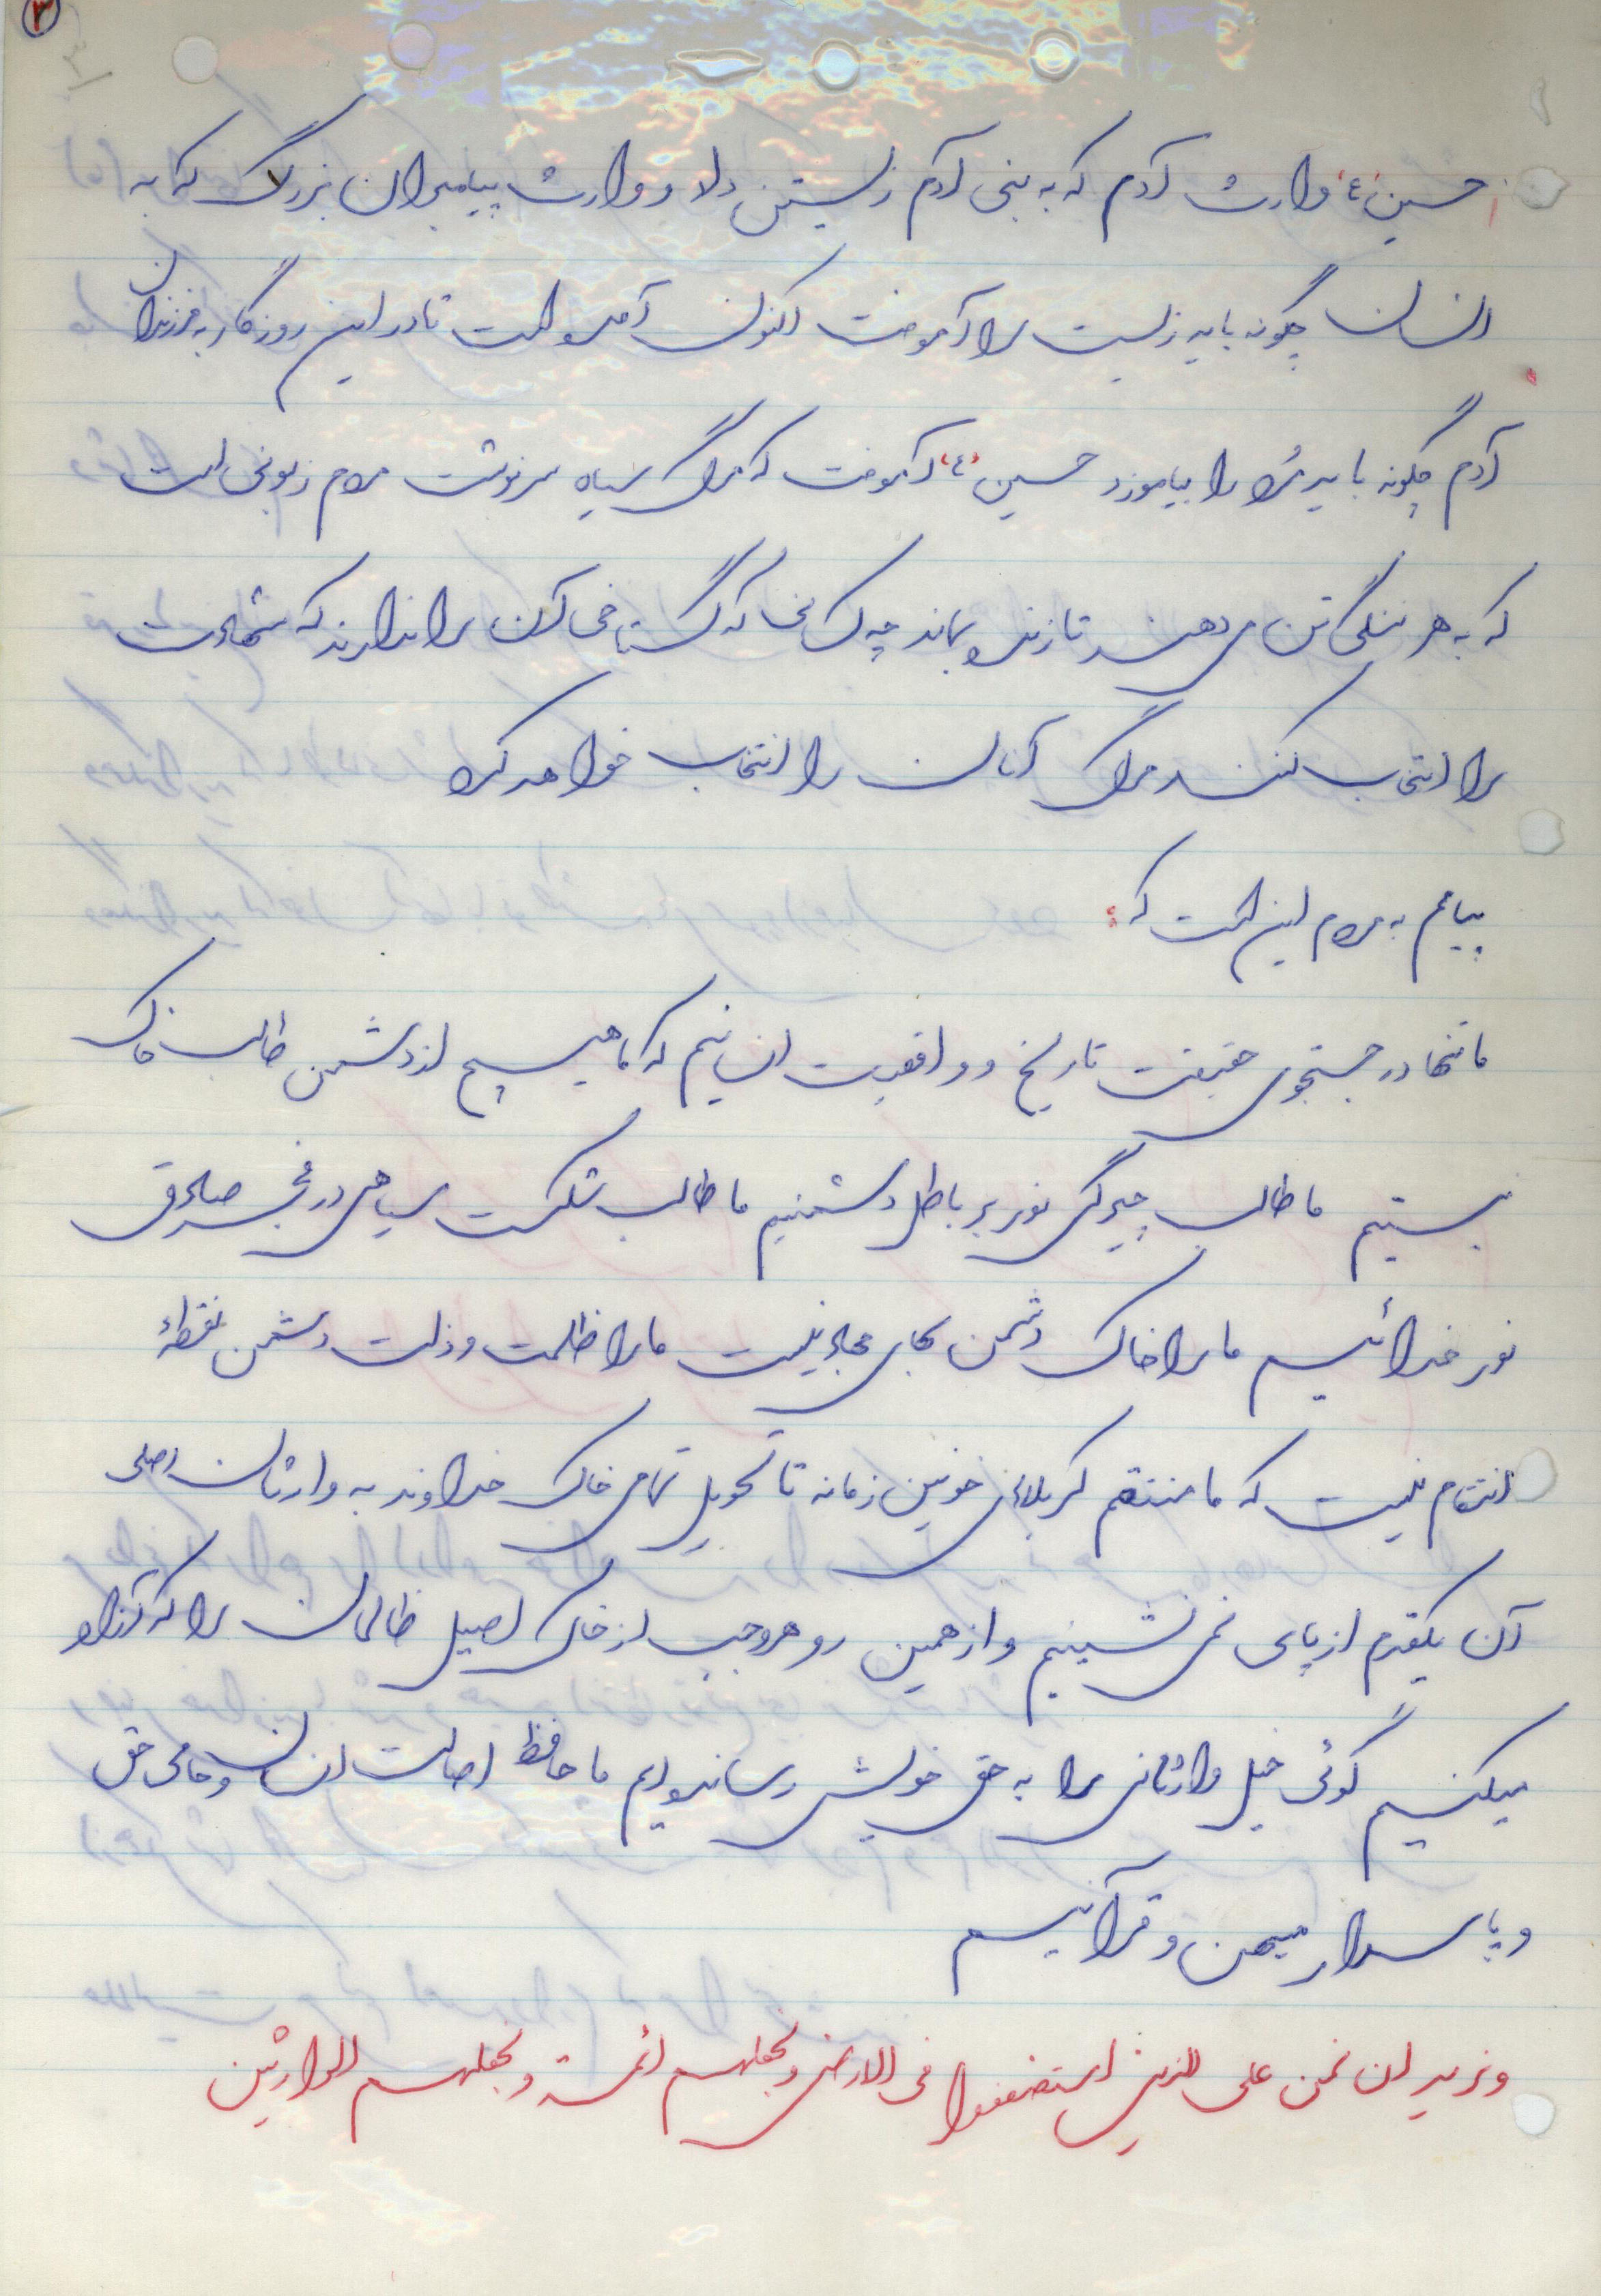 ۳
حسین "ع" وارث آدم که به بنی آدم زیستن داد و وارث پیامبران بزرگ که به
انسان چگونه باید زیست را آموخت اکنون آمده است تا در این روزگار به فرزندان
آدم چگونه باید مرد را بیاموزد حسین "ع" آموخت که مرگ سیاه سرنوشت مردم زبونی است
که به هر ننگی تن می دهند تا زنده بماند چه کسانی که گستاخی آن را ندارند که شهادت
را انتخاب کنند مرگ آنان را انتخاب خواهد کرد
پیامم به مردم این است که :
ما تنها در جستجوی حقیقت تاریخ و واقعیت انسانیم که ما هیچ از دشمن طالب خاک
نیستیم ما طالب چیرگی نور بر باطل دشمنیم ما طالب شکست سیاهی در فجر صادق
نور خدائیم ما را خاک دشمن بجای مجاز نیست ما را ظلمت و ذلت دشمن نقطهٔ
انتقام نیست که ما منتقم کربلای خونین زمانه تا تحویل تمامی خاک خداوند به وارثان اصلی
آن یکقدم از پای نمی نشینیم و از همین رو هر وجب از خاک اصیل ظالمان را که آزاد
میکنیم گوئی خیل وارثانی را به حق خویش رسانده ایم ما حافظ اصالت انسان و حامی حق
و پاسدار میهن و قرآنیم
و نرید ان نمن علی الذین استضعفوا فی الارض و نجعلهم ائمة و نجعلهم الوارثین